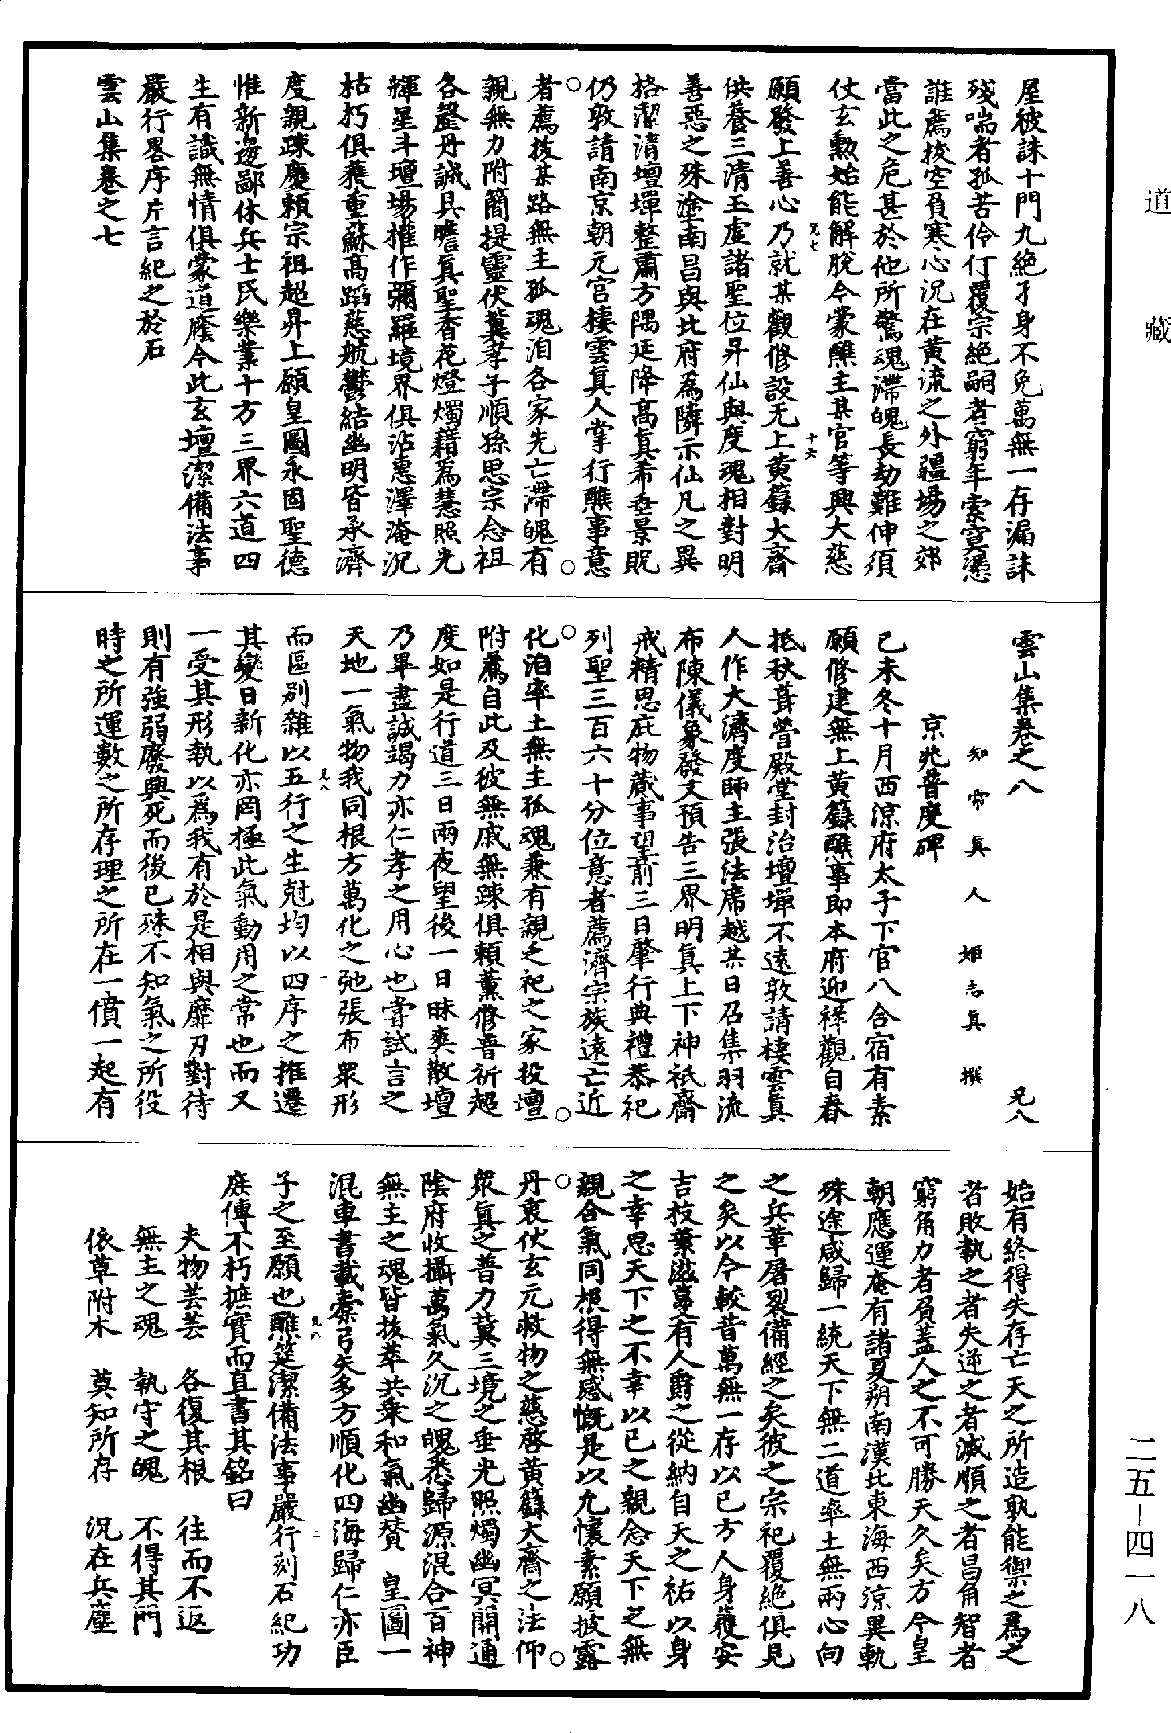 道藏
屋被誅十門九絶孑身不免萬無一存漏誅
殘喘者孤苦伶仃覆宗絶嗣者窮年索寞憑
誰薦拔空負寒心況在黃流之外疆場之郊
當此之危甚於他所驚魂滯魄長劫難伸須
仗玄勲始能解脫今蒙醮主某官等興大慈
兄七
十六
願發上善心乃就某觀修設无上黃籙大齋
供養三清玉虛諸聖位昇仙與度魂相對明
善惡之殊塗南昌與北府為隣示仙凡之異
格潔清壇墠整肅方隅延降高真希垂景貺
仍敦請南京朝元宫棲雲真人掌行醮事意
者薦拔某路無主孤魂洎各家先亡滯魄有
親無力附簡提靈伏冀孝子順孫思宗念祖
各罄丹誠具瞻真聖香花燈燭藉為慧照光
輝星斗壇場權作彌羅境界俱沾惠澤淹沉
枯朽俱蕤重蘇高蹈慈航鬱結幽明皆承濟
度親踈慶賴宗祖超昇上願皇圖永固聖德
惟新邊鄙休兵士民樂業十方三界六道四
生有識無情俱蒙道廕今此玄壇潔備法事
嚴行畧序片言紀之於石
雲山集卷之七
雲山集卷之八 兄八
知常真人姬志真撰
京兆普度碑
己未冬十月西涼府太子下官八合宿有素
願修建無上黃籙醮事即本府迎祥觀自春
抵秋葺營殿堂封治壇墠不遠敦請棲雲真
人作大濟度師主張法席越某日召集羽流
布陳儀象發文預告三界明真上下神祇齋
戒精思庇物蕆事望前三日肇行典禮恭祀
列聖三百六十分位意者薦濟宗族遠亡近
化洎率土無主孤魂兼有親乏祀之家投壇
附薦自此及彼無戚無踈俱賴薰修普祈超
度如是行道三日兩夜望後一日昧爽散壇
乃畢盡誠竭力亦仁孝之用心也嘗試言之
天地一氣物我同根方萬化之弛張布衆形
兄八
一
而區别雜以五行之生尅均以四序之推遷
其變日新化亦罔極此氣動用之常也而又
一受其形執以為我有於是相與靡刃對待
則有強弱廢興死而後已殊不知氣之所役
時之所運數之所存理之所在一僨一起有
始有終得失存亡天之所造孰能禦之為之
者敗執之者失逆之者滅順之者昌角智者
窮角力者負蓋人之不可勝天久矣方今皇
朝應運奄有諸夏朔南漢北東海西涼異軌
殊途咸歸一統天下無二道率土無兩心向
之兵革屠裂備經之矣彼之宗祀覆絶俱見
之矣以今較昔萬無一存以已方人身獲安
吉枝葉滋蔓有人爵之從納自天之祐以身
之幸思天下之不幸以已之親念天下之無
親合氣同根得無感慨是以允懷素願披露
丹衷伏玄元救物之慈啓黃籙大齋之法仰
衆真之普力冀三境之垂光照燭幽冥開通
陰府收攝萬氣久沉之魄悉歸源混合百神
無主之魂皆拔萃共乘和氣幽贊 皇圖一
混車書載橐弓矢多方順化四海歸仁亦臣
兄八
二
子之至願也醮筵潔備法事嚴行刻石紀功
庶傳不朽摭實而直書其銘曰
夫物芸芸 各復其根 往而不返
無主之魂 執守之魄 不得其門
依草附木 莫知所存 況在兵塵
二五－四一八